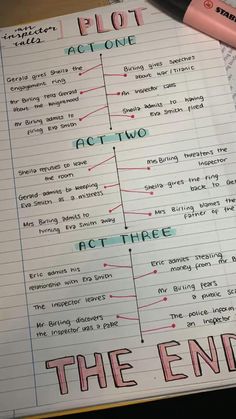 an
inspector
calls
PLOT
STABILO
ACT ONE
Gerald gives Sheila the
engagement ring
Birling gives speeches
about war/titanic
Mr Birling tells Gerald
about the knighthood
An inspector calls
Mr Birling admits to
firing Eva Smith
Sheila admits to having
Eva Smith fired
ACT TWO
Sheila refuses to leave
the room
Mrs Birling threatens the
inspector
Gerald admits to keeping
Eva Smith as a mistress
Sheila gives the ring
back to
Mrs Birling admits to
turning Eva Smith away
Mrs Birling blames the
father of the
ACT THREE
Eric admits his
relationship with Eva Smith
Eric admits stealing
money from Mr
The inspector leaves
Mr Birling fears
a public
Mr Birling discovers
the inspector was a fake
The police inform
an inspector
THE END